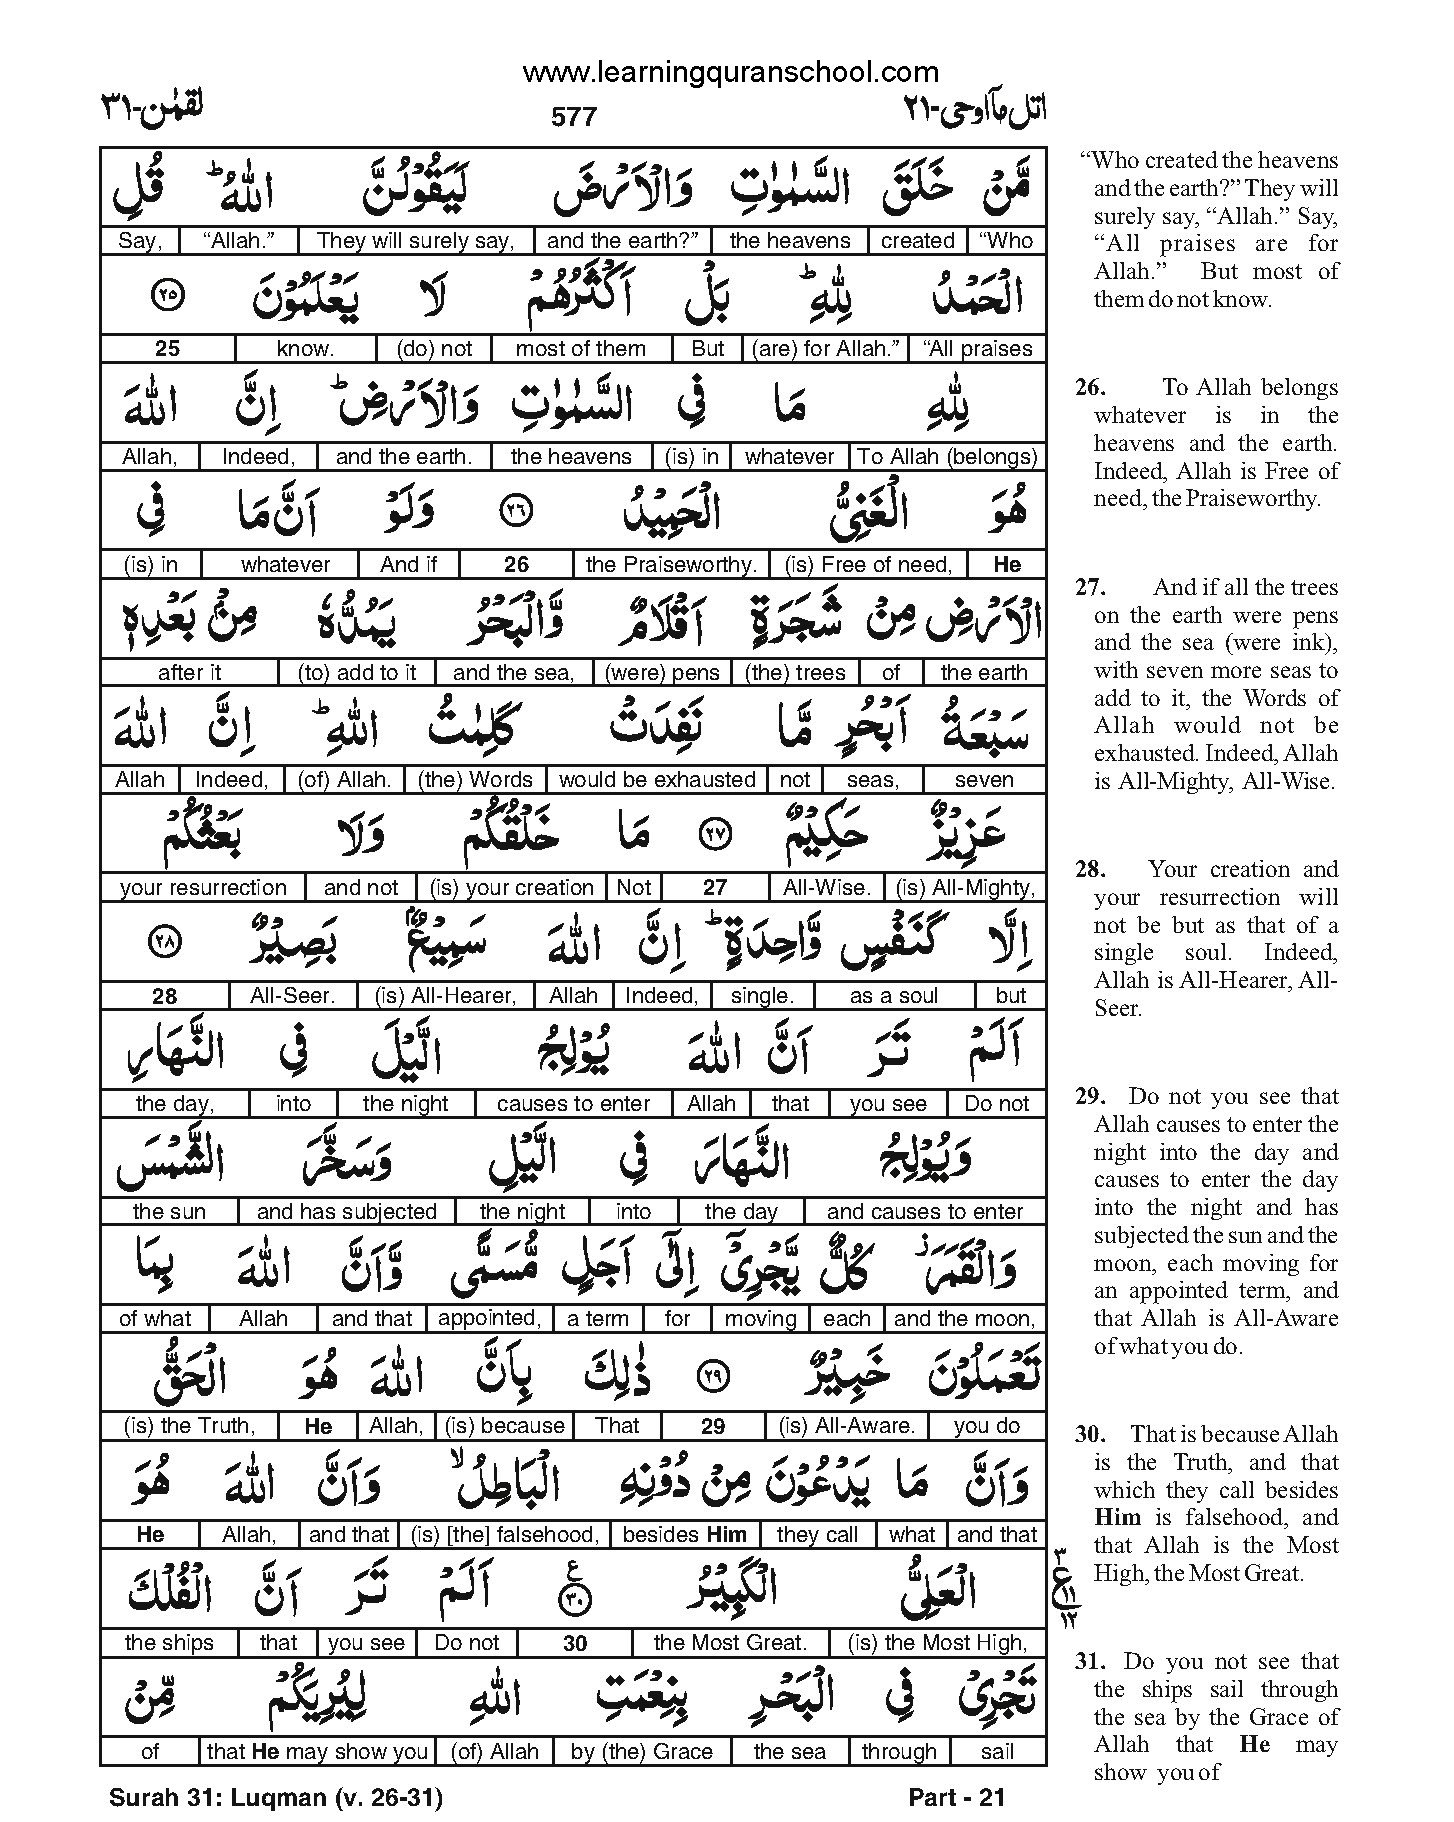 www.learningquranschool.com
اتل مآ اوحی-٢١ 577 لقمٰن-٣١
مَّنْ خَلَقَ السَّمٰوٰتِ وَالْاَرْضَ لَيَقُوْلُنَّ اللّٰهُ ؕ قُلِ
Say, “Allah.” They will surely say, and the earth?” the heavens created “Who
الْحَمْدُ لِلّٰهِ ؕ بَلْ اَكْثَرُهُمْ لَا يَعْلَمُوْنَ ٢٥
25 know. (do) not most of them But (are) for Allah.” “All praises
لِلّٰهِ مَا فِى السَّمٰوٰتِ وَالْاَرْضِ ؕ اِنَّ اللّٰهَ
Allah, Indeed, and the earth. the heavens (is) in whatever To Allah (belongs)
هُوَ الْغَنِىُّ الْحَمِيْدُ ٢٦ وَلَوْ اَنَّ مَا فِى
(is) in whatever And if 26 the Praiseworthy. (is) Free of need, He
الْاَرْضِ مِنْ شَجَرَةٍ اَقْلَامٌ وَّالْبَحْرُ يَمُدُّهٗ مِنْۢ بَعْدِهٖ
after it (to) add to it and the sea, (were) pens (the) trees of the earth
سَبْعَةُ اَبْحُرٍ مَّا نَفِدَتْ كَلِمٰتُ اللّٰهِ ؕ اِنَّ اللّٰهَ
Allah Indeed, (of) Allah. (the) Words would be exhausted not seas, seven
عَزِيْزٌ حَكِيْمٌ ٢٧ مَا خَلْقُكُمْ وَلَا بَعْثُكُمْ
your resurrection and not (is) your creation Not 27 All-Wise. (is) All-Mighty,
اِلَّا كَنَفْسٍ وَّاحِدَةٍ ؕ اِنَّ اللّٰهَ سَمِيْعٌۢ بَصِيْرٌ ٢٨
28 All-Seer. (is) All-Hearer, Allah Indeed, single. as a soul but
اَلَمْ تَرَ اَنَّ اللّٰهَ يُوْلِجُ الَّيْلَ فِى النَّهَارِ
the day, into the night causes to enter Allah that you see Do not
وَيُوْلِجُ النَّهَارَ فِى الَّيْلِ وَسَخَّرَ الشَّمْسَ
the sun and has subjected the night into the day and causes to enter
وَالْقَمَرَ ز كُلٌّ يَّجْرِىْٓ اِلٰٓى اَجَلٍ مُّسَمًّى وَّاَنَّ اللّٰهَ بِمَا
of what Allah and that appointed, a term for moving each and the moon,
تَعْمَلُوْنَ خَبِيْرٌ ٢٩ ذٰلِكَ بِاَنَّ اللّٰهَ هُوَ الْحَقُّ
(is) the Truth, He Allah, (is) because That 29 (is) All-Aware. you do
وَاَنَّ مَا يَدْعُوْنَ مِنْ دُوْنِهِ الْبَاطِلُ ۙ وَاَنَّ اللّٰهَ هُوَ
He Allah, and that (is) [the] falsehood, besides Him they call what and that
الْعَلِىُّ الْكَبِيْرُ ٣٠ ع اَلَمْ تَرَ اَنَّ الْفُلْكَ
the ships that you see Do not 30 the Most Great. (is) the Most High,
تَجْرِىْ فِى الْبَحْرِ بِنِعْمَتِ اللّٰهِ لِيُرِيَكُمْ مِّنْ
of that He may show you (of) Allah by (the) Grace the sea through sail
٣
ع ١١
١٢
“Who created the heavens
and the earth?” They will
surely say, “Allah.” Say,
“All praises are for
Allah.” But most of
them do not know.
26. To Allah belongs
whatever is in the
heavens and the earth.
Indeed, Allah is Free of
need, the Praiseworthy.
27. And if all the trees
on the earth were pens
and the sea (were ink),
with seven more seas to
add to it, the Words of
Allah would not be
exhausted. Indeed, Allah
is All-Mighty, All-Wise.
28. Your creation and
your resurrection will
not be but as that of a
single soul. Indeed,
Allah is All-Hearer, All-
Seer.
29. Do not you see that
Allah causes to enter the
night into the day and
causes to enter the day
into the night and has
subjected the sun and the
moon, each moving for
an appointed term, and
that Allah is All-Aware
of what you do.
30. That is because Allah
is the Truth, and that
which they call besides
Him is falsehood, and
that Allah is the Most
High, the Most Great.
31. Do you not see that
the ships sail through
the sea by the Grace of
Allah that He may
show you of
Surah 31: Luqman (v. 26-31) Part - 21